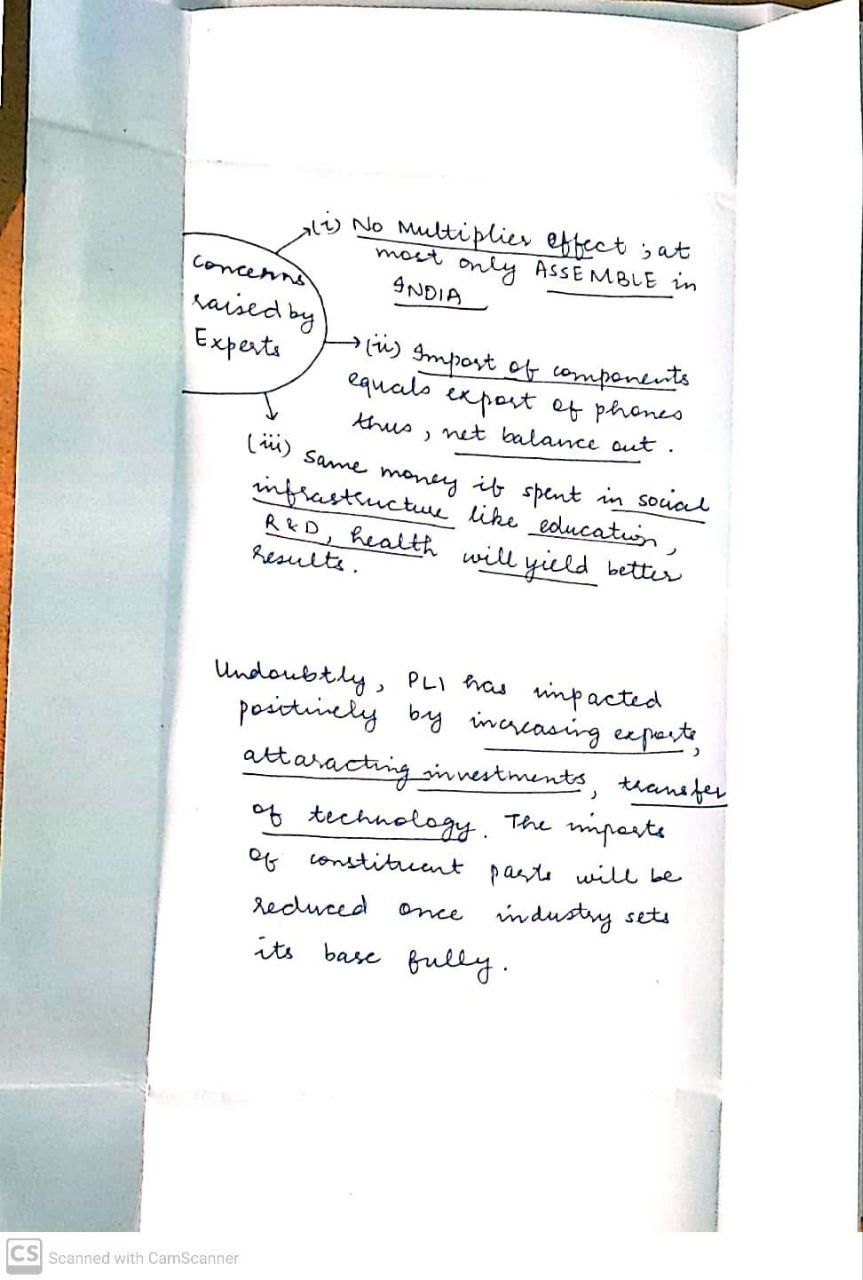 (i) No Multiplier effect ; at
most only ASSEMBLE in
INDIA
Concerns
raised by
Experts
(ii) Import of components
equals export of phones
thus , net balance out .
(iii) Same money if spent in social
infrastructure like education,
R & D, health will yield better
results .
Undoubtly, PLI has impacted
positively by increasing exports,
attaracting investments, transfer
of technology. The imports
of constituent parts will be
reduced once industry sets
its base fully .
CS Scanned with CamScanner